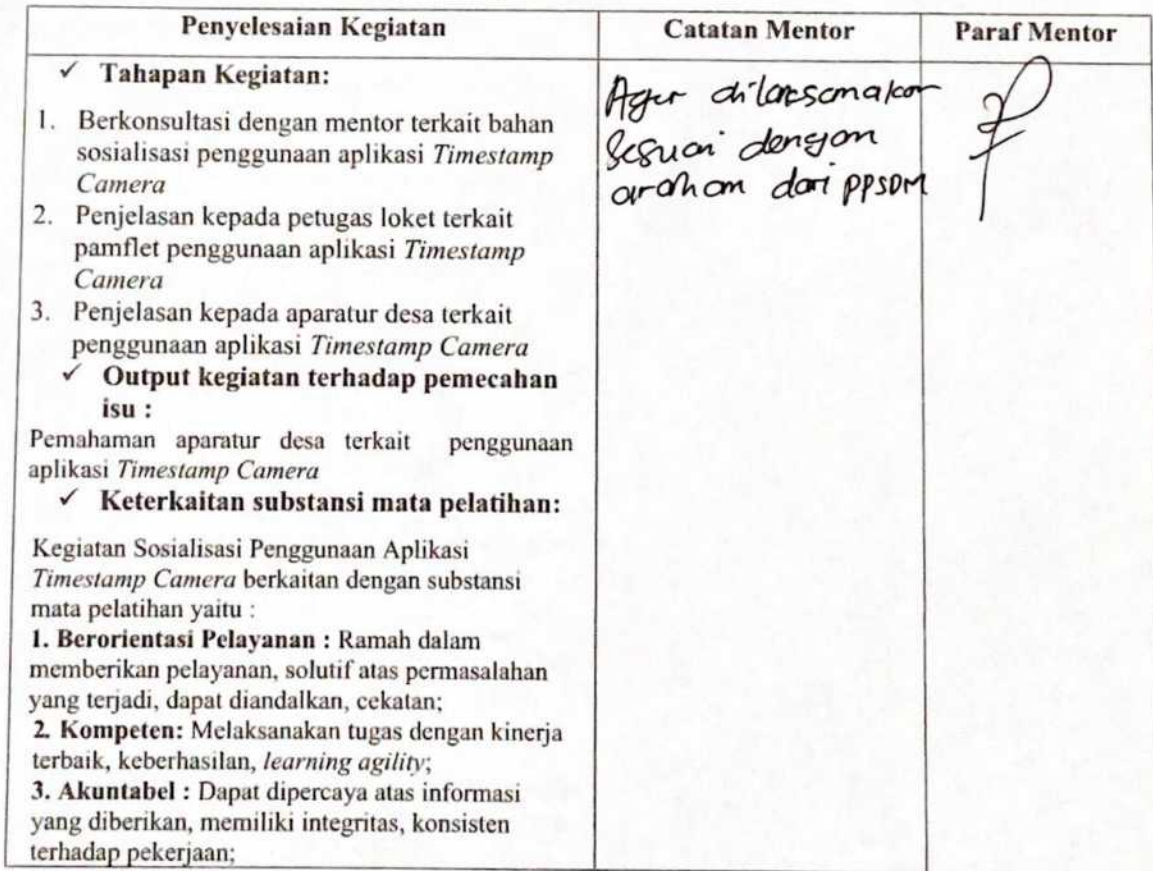 Penyelesaian Kegiatan
Catatan Mentor
Paraf Mentor
✓ Tahapan Kegiatan:
1. Berkonsultasi dengan mentor terkait bahan
sosialisasi penggunaan aplikasi Timestamp
Camera
2. Penjelasan kepada petugas loket terkait
pamflet penggunaan aplikasi Timestamp
Camera
3. Penjelasan kepada aparatur desa terkait
penggunaan aplikasi Timestamp Camera
✓ Output kegiatan terhadap pemecahan
isu :
Pemahaman aparatur desa terkait penggunaan
aplikasi Timestamp Camera
✓ Keterkaitan substansi mata pelatihan:
Kegiatan Sosialisasi Penggunaan Aplikasi
Timestamp Camera berkaitan dengan substansi
mata pelatihan yaitu :
1. Berorientasi Pelayanan : Ramah dalam
memberikan pelayanan, solutif atas permasalahan
yang terjadi, dapat diandalkan, cekatan;
2. Kompeten: Melaksanakan tugas dengan kinerja
terbaik, keberhasilan, learning agility;
3. Akuntabel : Dapat dipercaya atas informasi
yang diberikan, memiliki integritas, konsisten
terhadap pekerjaan;
Agar dilaksanakan
Sesuai dengan
arahan dari PPSDM